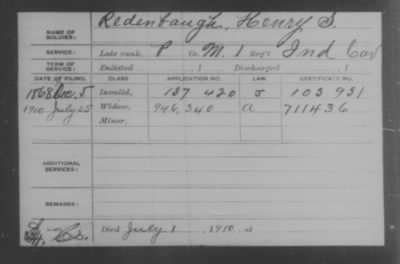 NAME OF SOLDIER: Redenbaugh, Henry S.
SERVICE: Late rank, P Co. M, 1 Reg't Ind Cav
TERM OF SERVICE: Enlisted , 1 Discharged , 1
DATE OF FILING. CLASS APPLICATION NO. LAW. CERTIFICATE NO.
1868 Dec. 5 Invalid, 137 420 J 103 931
1910 July 25 Widow, 946,340 A 711436
Minor,
ADDITIONAL SERVICES:
REMARKS:
Died July 1, 1910, at